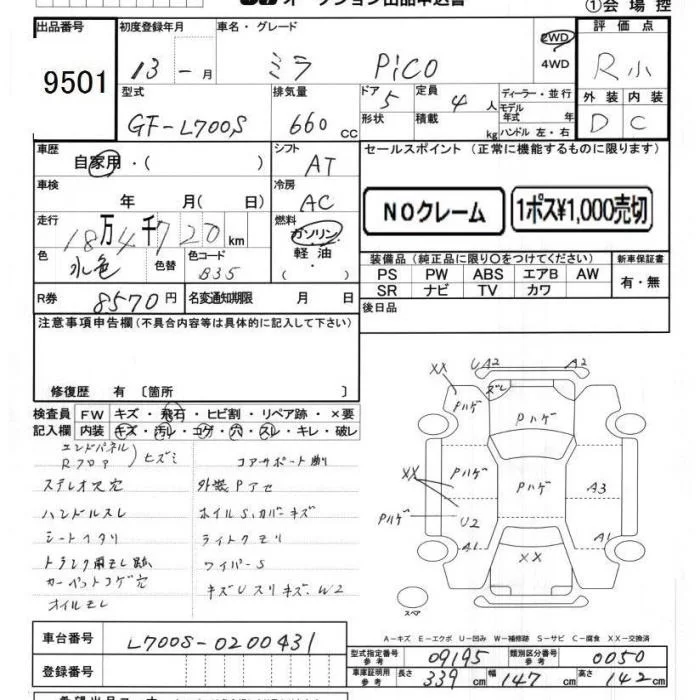 オークション出品申込書
①会場控
出品番号
9501
初度登録年月
13 - 月
車名・グレード
ミラ PiCO
2WD
4WD
評価点
R小
外装 内装
D C
型式
GF-L700S
排気量
660 cc
ドア 5
形状
定員 4 人
積載 kg
ディーラー・並行
モデル年式 年
ハンドル 左・右
車歴
自家用・( )
シフト
AT
車検
年 月( 日)
冷房
AC
走行
18万4千720 km
燃料
ガソリン
軽油
( )
色
水色
色替
色コード
B35
R券 8570円
名変通知期限 月 日
セールスポイント(正常に機能するものに限ります)
NOクレーム
1ポス¥1,000売切
装備品(純正品に限り〇をつけてください)
PS PW ABS エアB AW
SR ナビ TV カワ
新車保証書
有・無
後日品
注意事項申告欄(不具合内容等は具体的に記入して下さい)
修復歴 有〔箇所 〕
検査員記入欄
FW キズ・飛石・ヒビ割・リペア跡・×要
内装 キズ・汚レ・コゲ・穴・スレ・キレ・破レ
エンドパネル
Rフロア
ヒズミ
コアサポート割
ステレオ穴
外装Pアセ
ハンドルスレ
ホイルS、カバーキズ
シートヘタリ
ライトクモリ
ワイパーS
カーペットコゲ穴
オイルモレ
キズUスリキズ、W2
UA2 A2
XX ズレ
Pハゲ Pハゲ
XX Pハゲ Pハゲ A3
Pハゲ U2
A1 A1
XX
スペア
A-キズ E-エクボ U-凹み W-補修跡 S-サビ C-腐食 XX-交換済
車台番号 L700S-0200431
登録番号
型式指定番号 参考 09195
類別区分番号 参考 0050
車庫証明用 参考 長さ 339 cm 幅 147 cm 高さ 142 cm